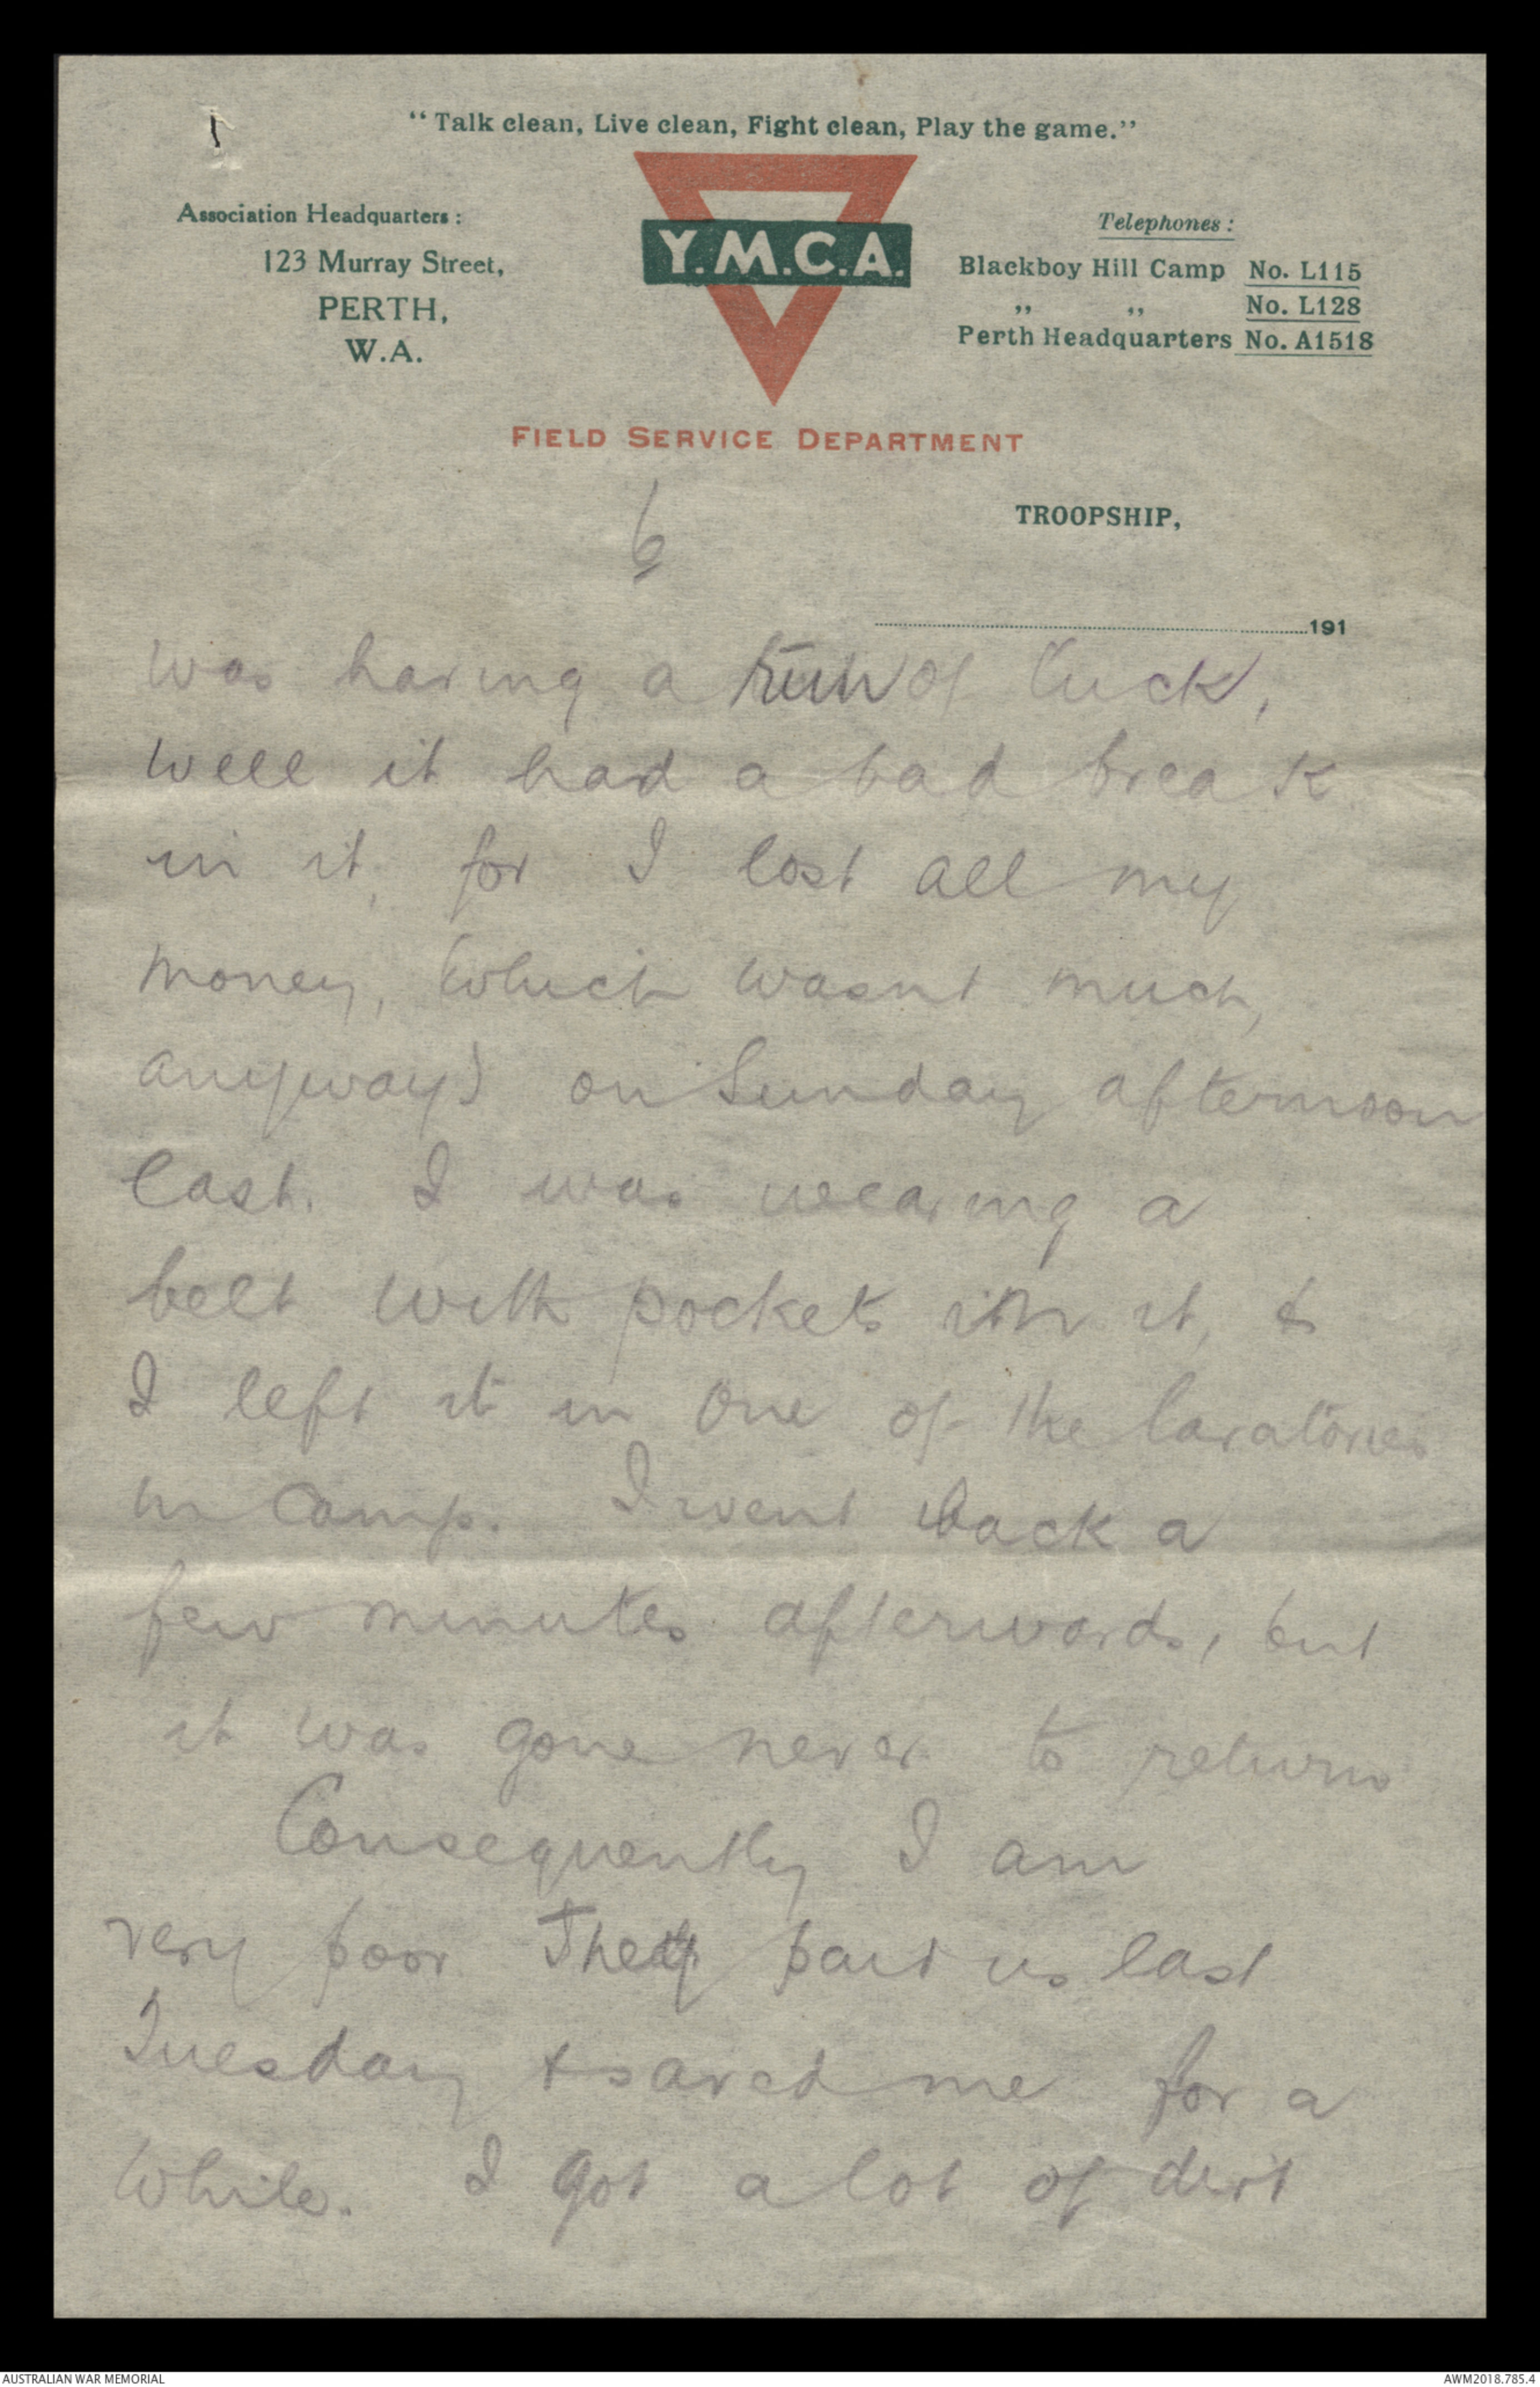 "Talk clean, Live clean, Fight clean, Play the game."
Association Headquarters :
123 Murray Street,
PERTH,
W.A.
Y.M.C.A.
Telephones :
Blackboy Hill Camp No. L115
" " No. L128
Perth Headquarters No. A1518
FIELD SERVICE DEPARTMENT
6
TROOPSHIP,
191
was having a run of luck,
well it had a bad break
in it, for I lost all my
money, (which wasnt much,
anyway) on Sunday afternoon
last. I was wearing a
belt with pockets in it, &
I left it in one of the lavatories
in camp. I went back a
few minutes afterwards, but
it was gone never to return
Consequently I am
very poor They paid us last
Tuesday & saved me for a
while. I got a lot of dirt
AUSTRALIAN WAR MEMORIAL
AWM2018.785.4